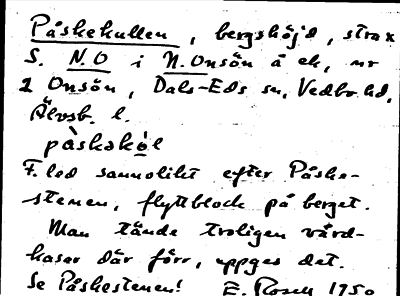 Påskekullen, bergshöjd, strax
S. N.O i N. Onsön å ek, nr
2 Onsön, Dals-Eds sn, Vedbo hd,
Älvsb. l.
påskekɵl
F. led sannolikt efter Påske-
stenen, flyttblock på berget.
Man tände troligen vård-
kasar där förr, uppges det.
Se Påskestenen! E. Rosell 1950